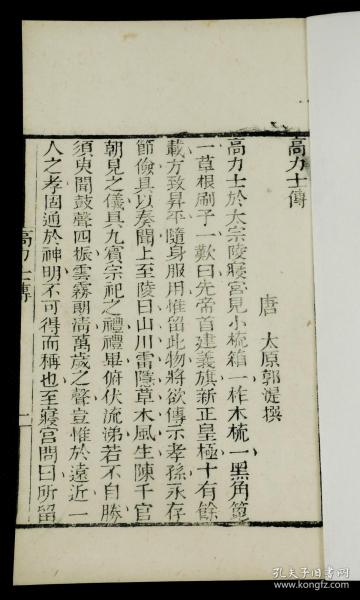 高力士傳
唐 太原郭湜撰
高力士於太宗陵寢宮見小梳箱一柞木梳一黑角篦
一草根刷子一歎曰先帝首建義旗新正皇極十有餘
載方致昇平隨身服用惟留此物將欲傳示孝孫永存
節儉具以奏聞上至陵日山川雷隱草木風生陳千官
朝見之儀具九賓宗祀之禮禮畢俯伏流涕若不自勝
須臾聞鼓聲四振雲霧朗清萬歲之聲豈惟於遠近一
人之孝固通於神明不可得而稱也至寢宮問曰所留
高力士傳
一
孔夫子旧书网